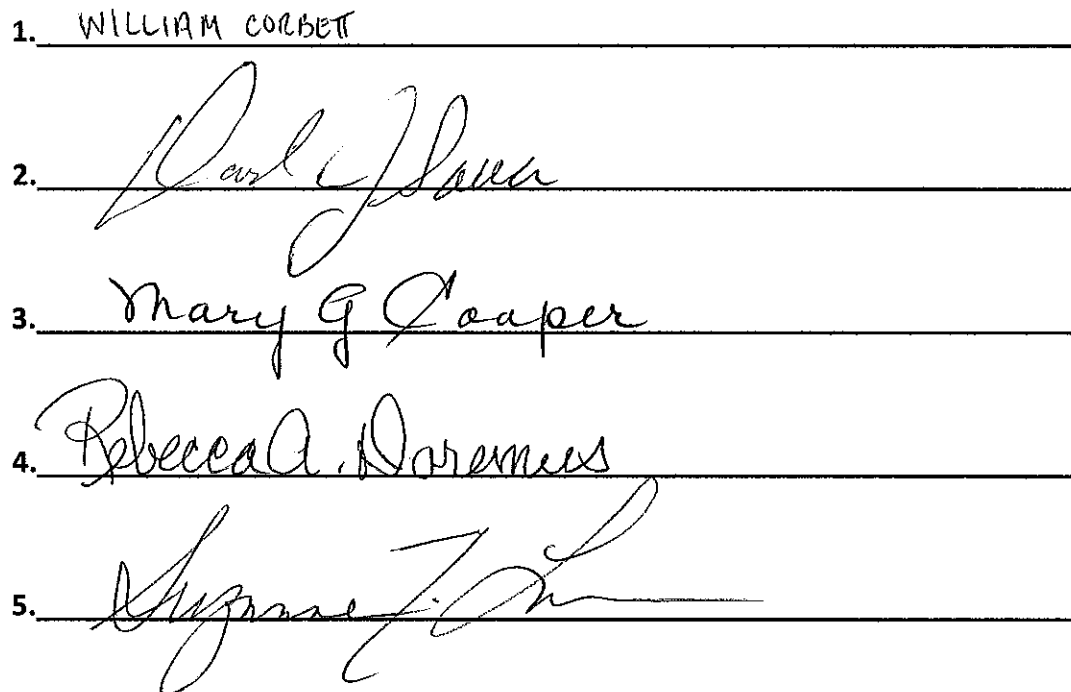 1. WILLIAM CORBETT
2.
3. Mary G Cooper
4. Rebecca A. Doremus
5. Suzanne F.